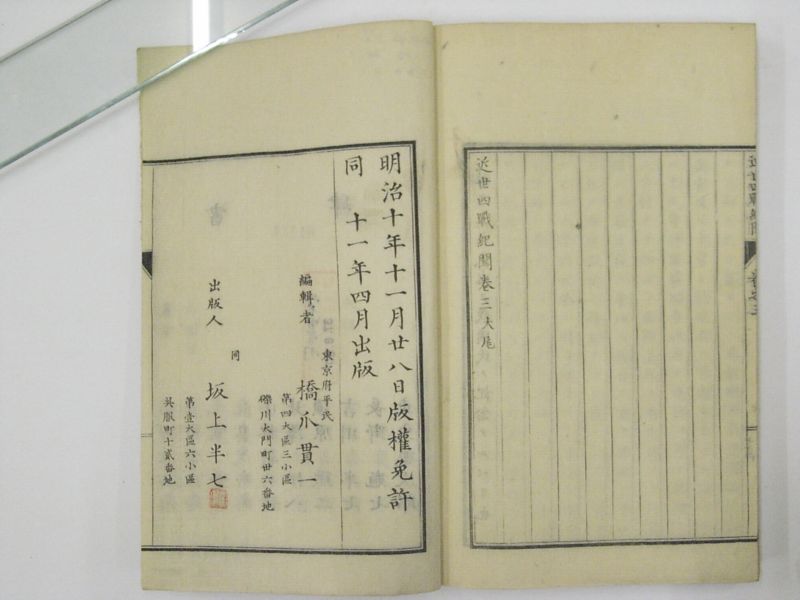 近世四戰紀聞
卷之三
近世四戰紀聞卷三大尾
明治十年十一月廿八日版權免許
同 十一年四月出版
東京府平民
編輯者 橋爪貫一
第四大區三小區
礫川大門町廿六番地
同
出版人 坂上半七
第壹大區六小區
吳服町十貳番地